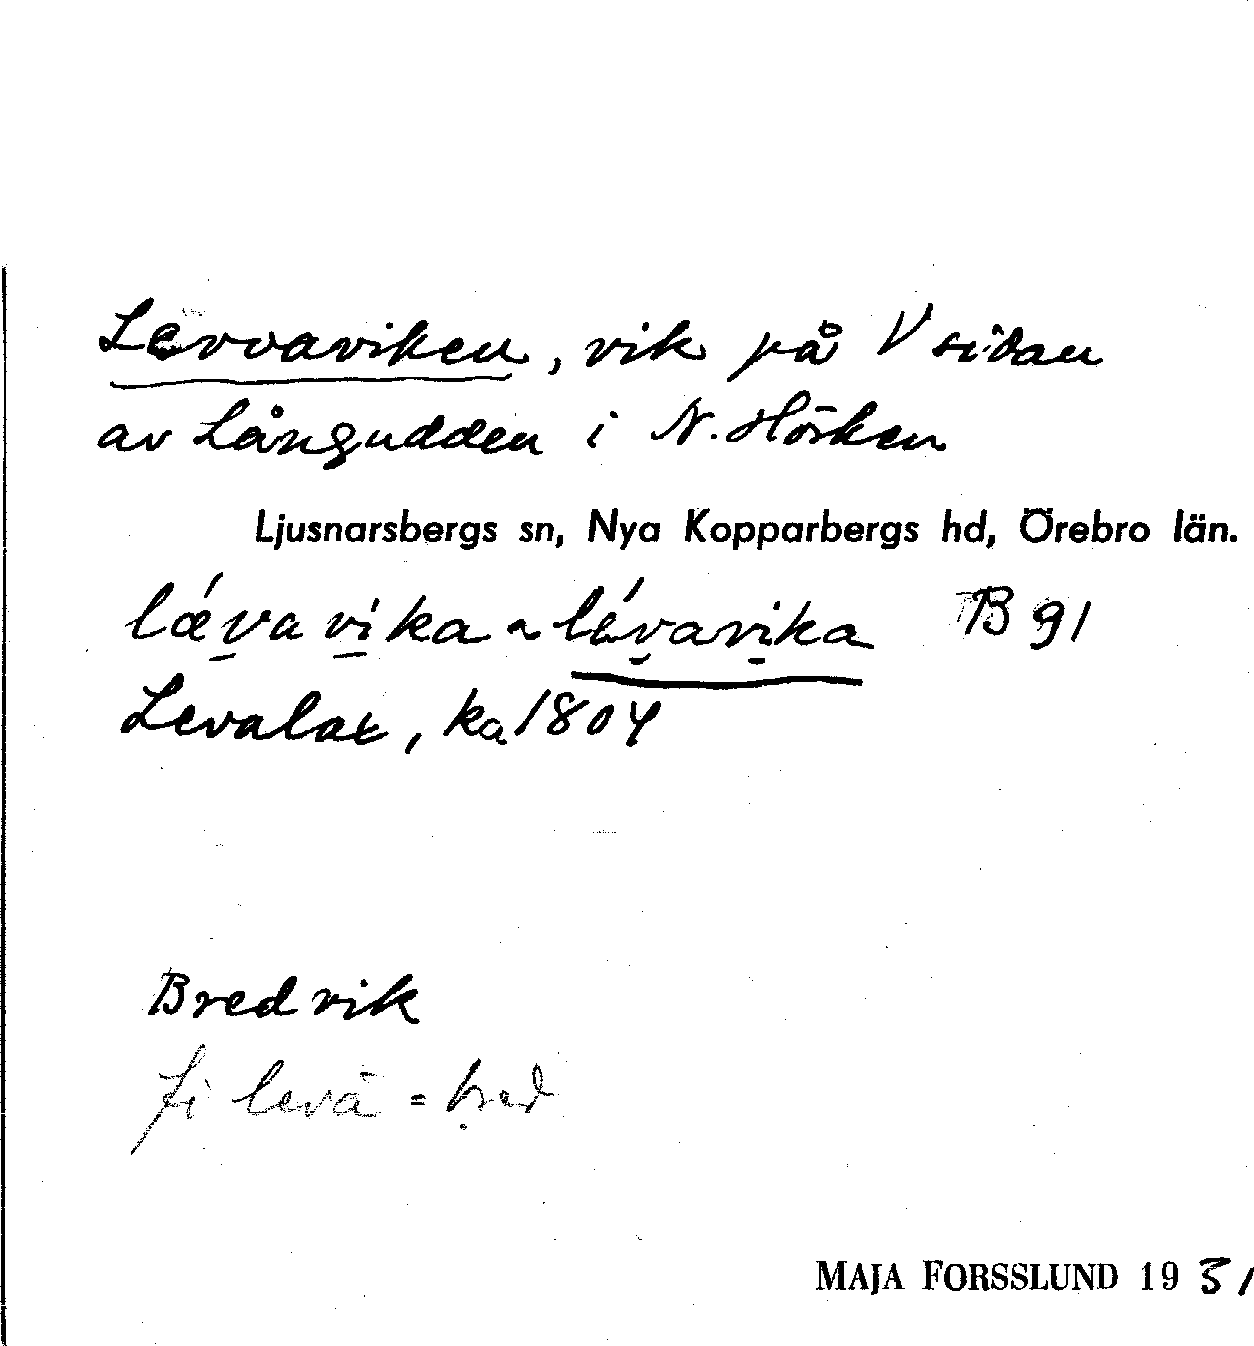 Levvaviken, vik på V sidan
av Långudden i N. Hörken
Ljusnarsbergs sn, Nya Kopparbergs hd, Örebro län.
lǽvavika ~ lévavika B 91
Levalax, ka 1804
Bredvik
fi levä = bred
MAJA FORSSLUND 1931